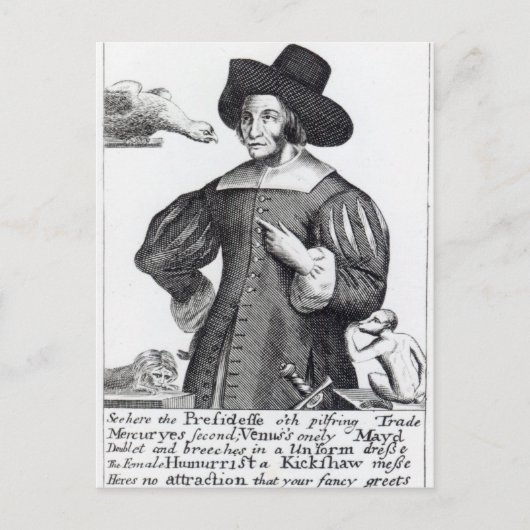 See here the Presidesse o'th pilfring Trade
Mercuryes second, Venus's onely Mayd
Doublet and breeches in a Un'form dresse
The Female Humurrist a Kickshaw messe
Heres no attraction that your fancy greets